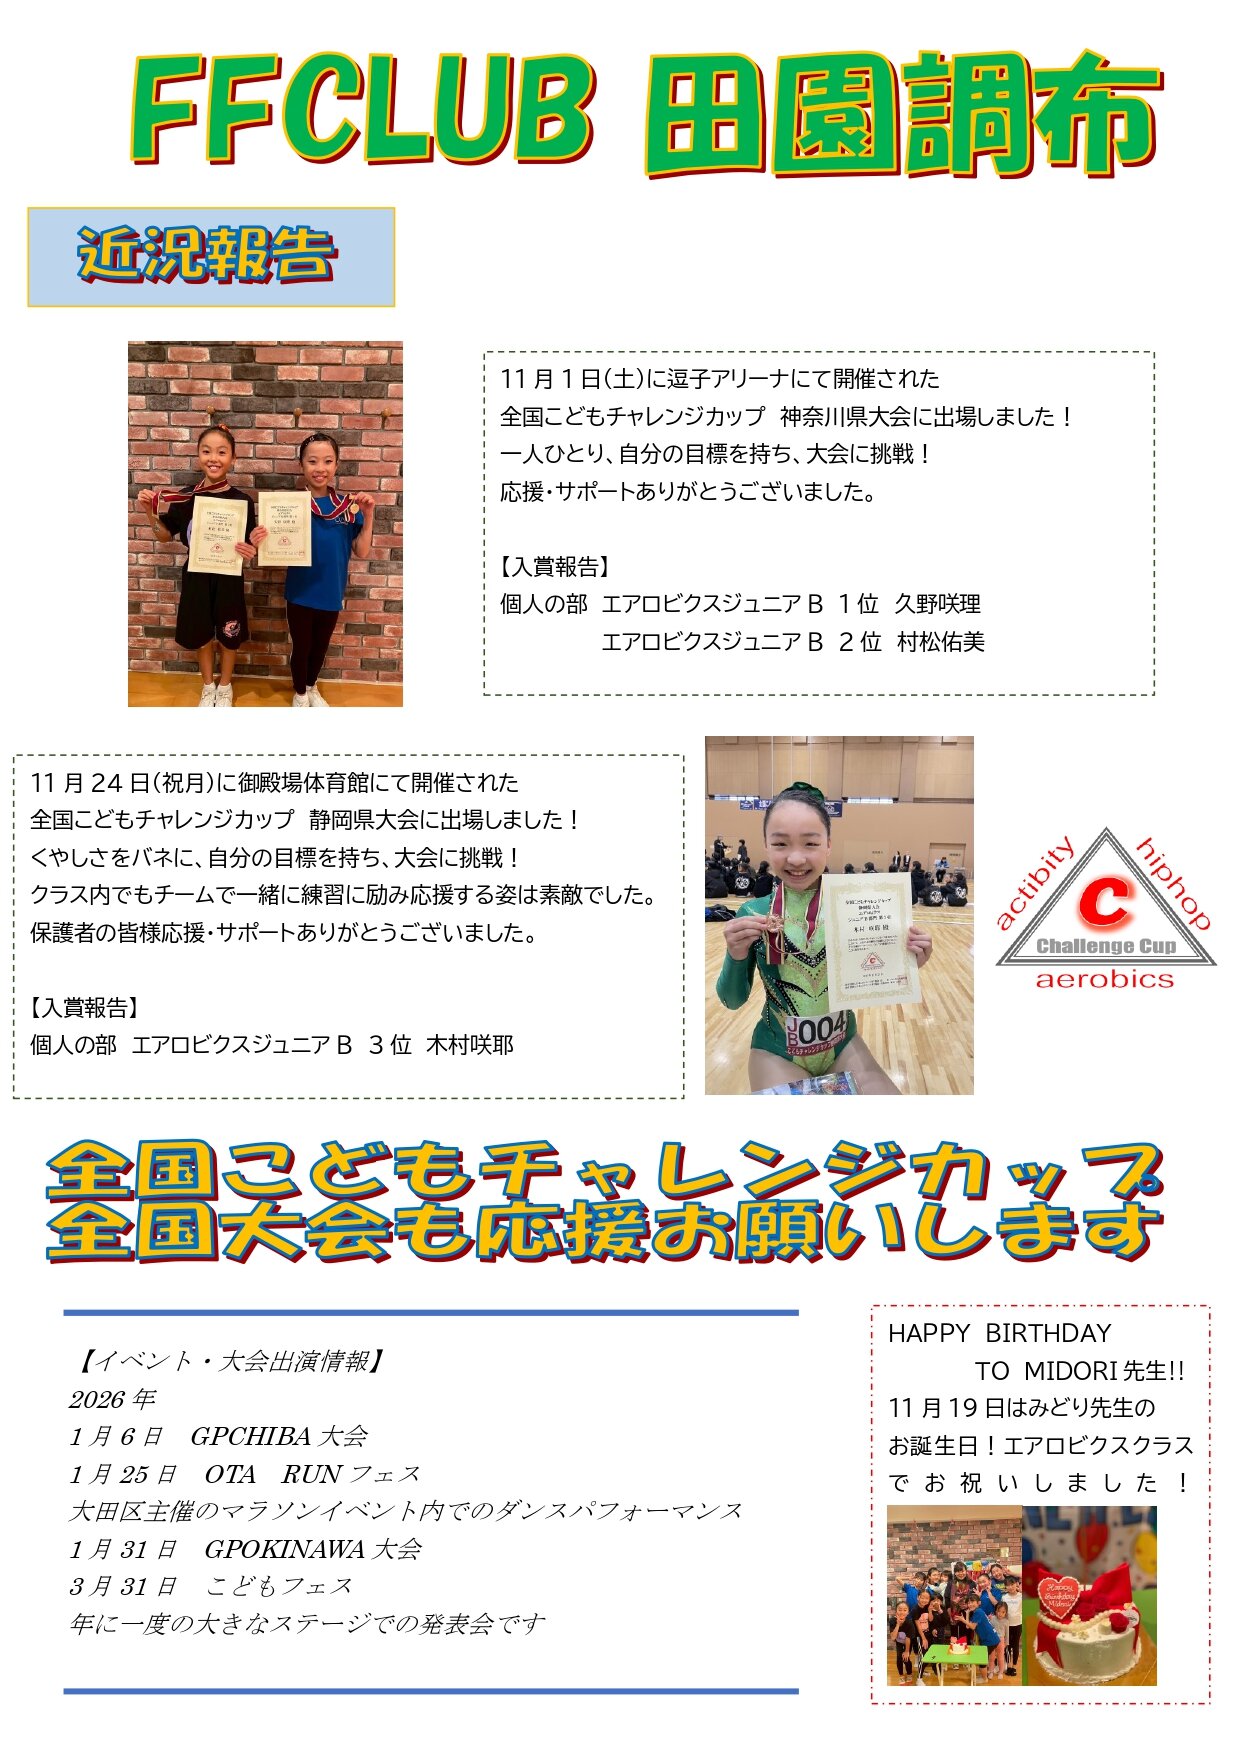 FFCLUB 田園調布
近況報告
11月1日(土)に逗子アリーナにて開催された
全国こどもチャレンジカップ 神奈川県大会に出場しました！
一人ひとり、自分の目標を持ち、大会に挑戦！
応援・サポートありがとうございました。
【入賞報告】
個人の部 エアロビクスジュニアB 1位 久野咲理
エアロビクスジュニアB 2位 村松佑美
11月24日(祝月)に御殿場体育館にて開催された
全国こどもチャレンジカップ 静岡県大会に出場しました！
くやしさをバネに、自分の目標を持ち、大会に挑戦！
クラス内でもチームで一緒に練習に励み応援する姿は素敵でした。
保護者の皆様応援・サポートありがとうございました。
【入賞報告】
個人の部 エアロビクスジュニアB 3位 木村咲耶
JB 004
actibity
hiphop
C
Challenge Cup
aerobics
全国こどもチャレンジカップ
全国大会も応援お願いします
【イベント・大会出演情報】
2026年
1月6日 GPCHIBA大会
1月25日 OTA RUNフェス
大田区主催のマラソンイベント内でのダンスパフォーマンス
1月31日 GPOKINAWA大会
3月31日 こどもフェス
年に一度の大きなステージでの発表会です
HAPPY BIRTHDAY
TO MIDORI先生!!
11月19日はみどり先生の
お誕生日！エアロビクスクラス
でお祝いしました！
Happy
Birthday
Midori